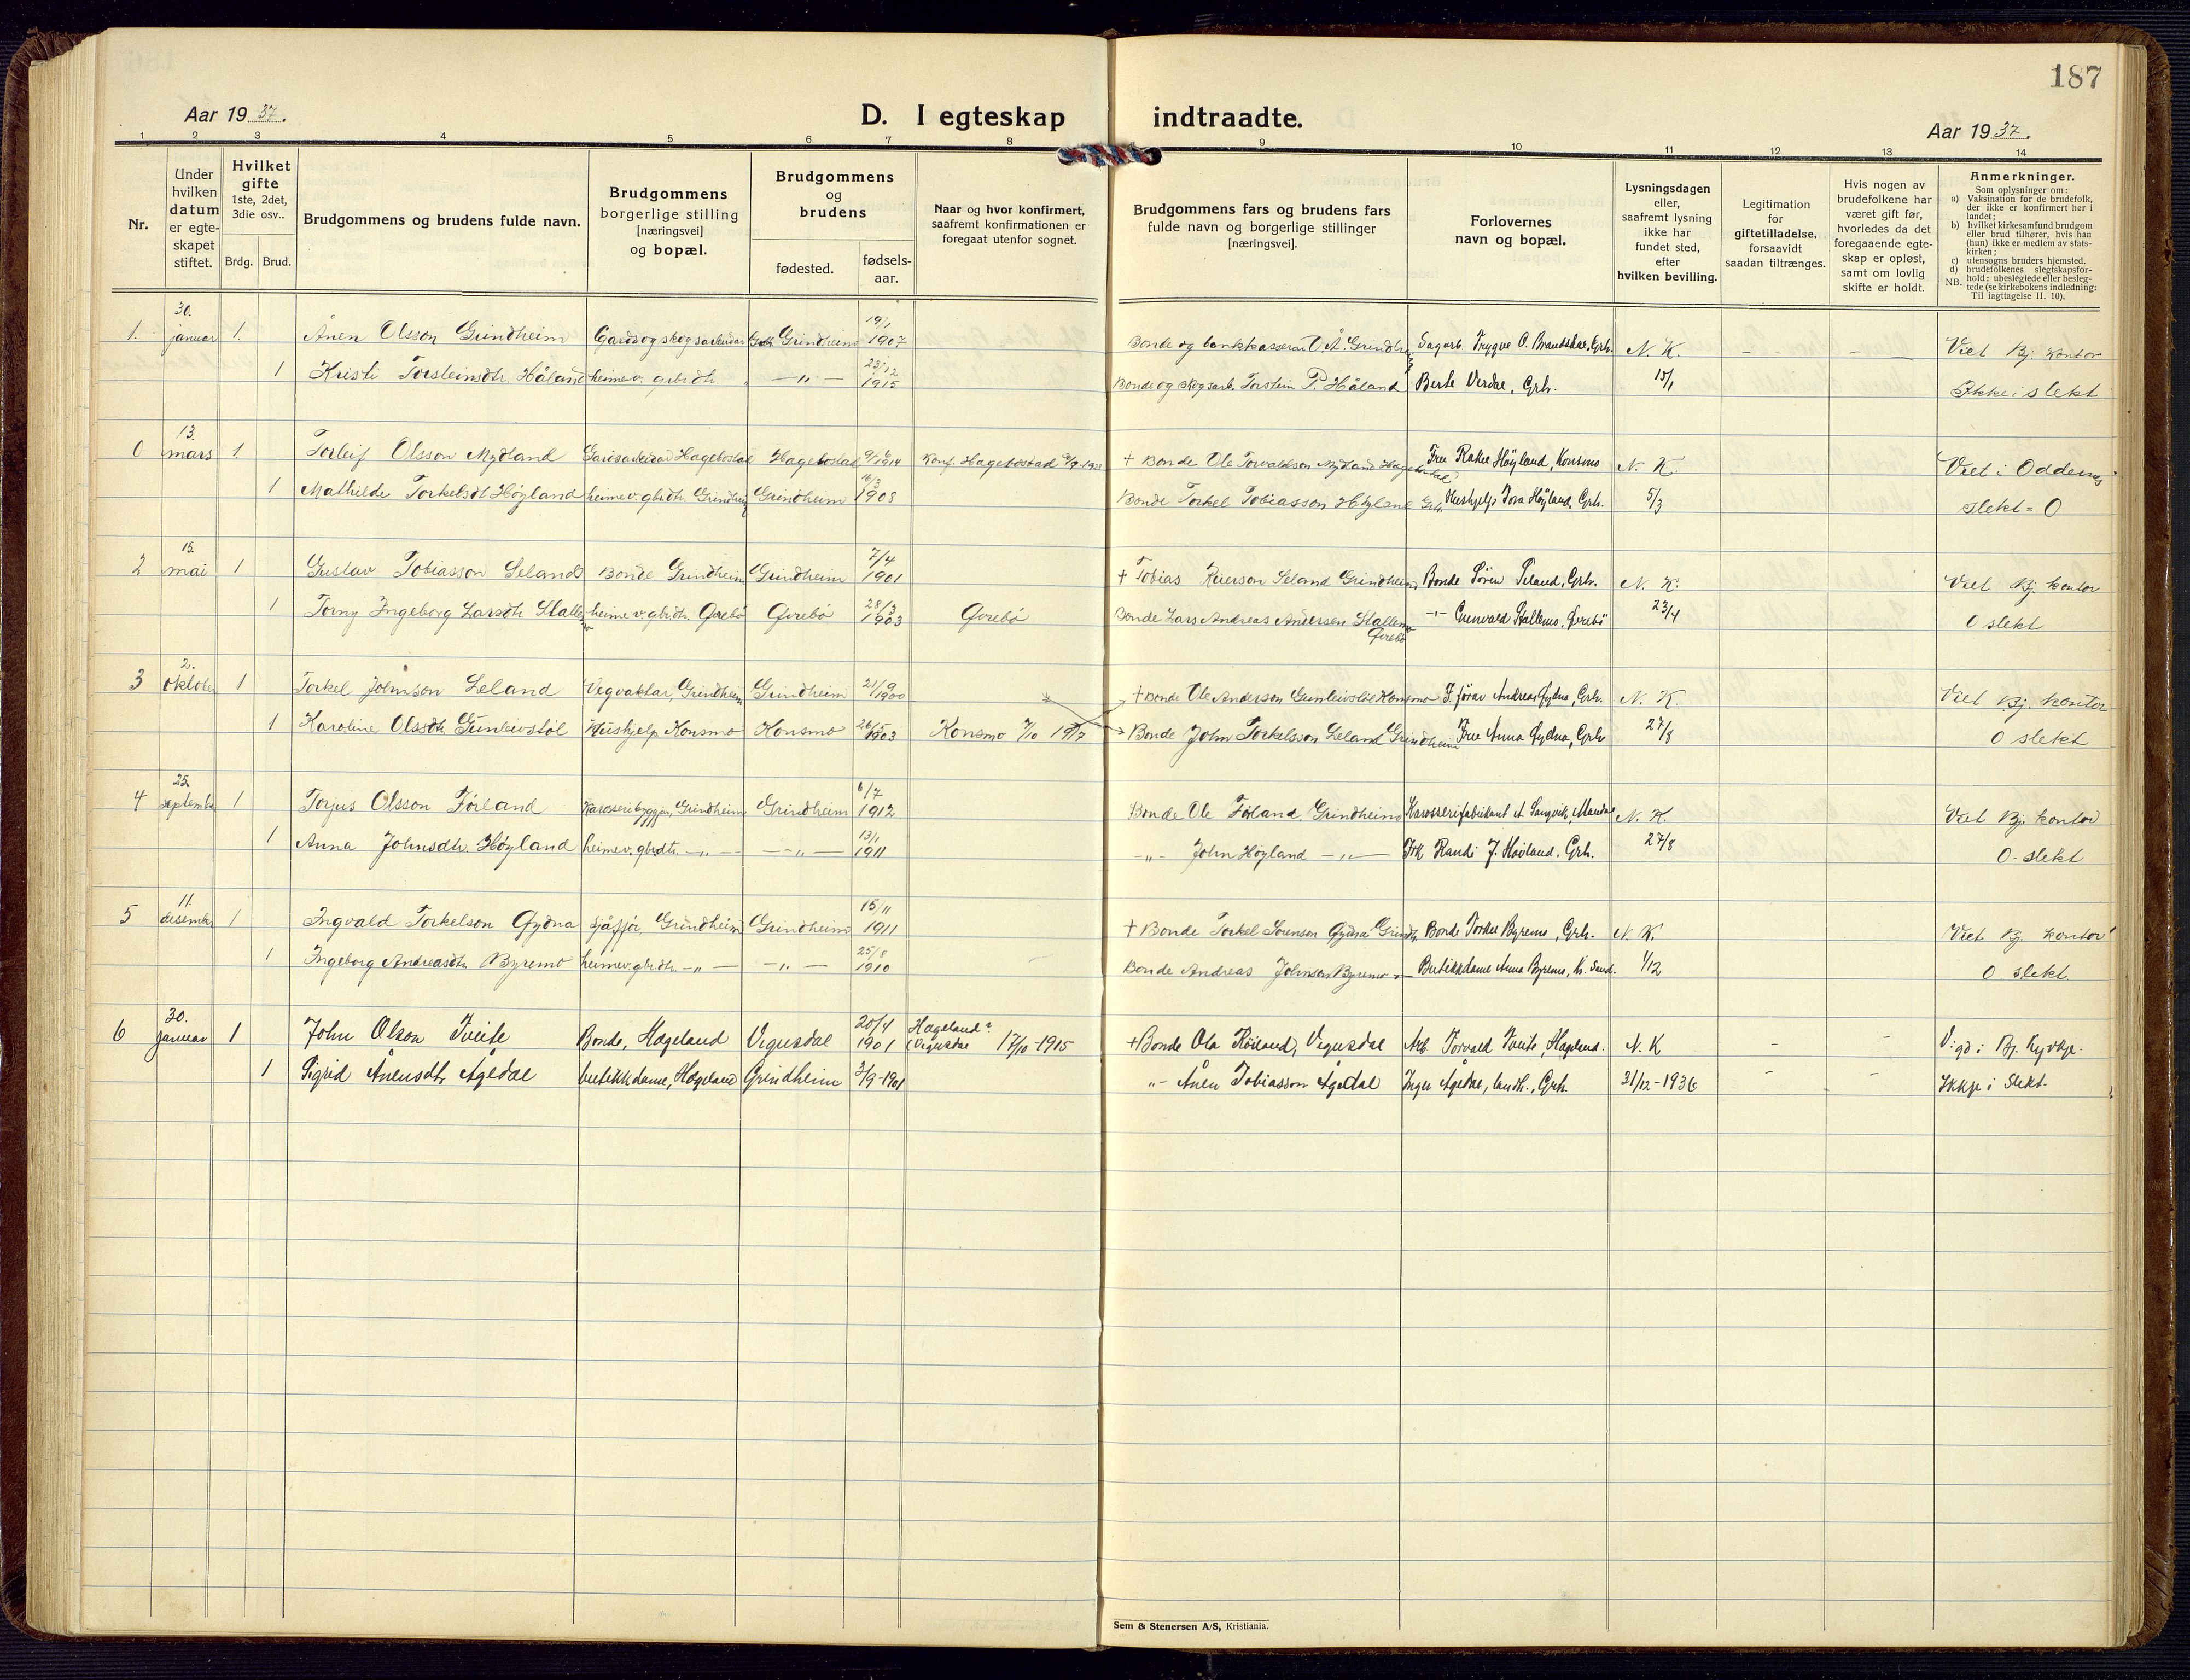 187
Aar 1937.
D. I egteskap indtraadte.
Aar 1937.
1 2 3 4 5 6 7 8 9 10 11 12 13 14
Nr.
Under hvilken datum er egteskapet stiftet.
Hvilket gifte 1ste, 2det, 3die osv..
Brdg. Brud.
Brudgommens og brudens fulde navn.
Brudgommens borgerlige stilling [næringsvei] og bopæl.
Brudgommens og brudens
fødested.
fødsels-aar.
Naar og hvor konfirmert, saafremt konfirmationen er foregaat utenfor sognet.
Brudgommens fars og brudens fars fulde navn og borgerlige stillinger [næringsvei].
Forlovernes navn og bopæl.
Lysningsdagen eller, saafremt lysning ikke har fundet sted, efter hvilken bevilling.
Legitimation for giftetilladelse, forsaavidt saadan tiltrænges.
Hvis nogen av brudefolkene har været gift før, hvorledes da det foregaaende egteskap er opløst, samt om lovlig skifte er holdt.
Anmerkninger.
Som oplysninger om:
a) Vaksination for de brudefolk, der ikke er konfirmert her i landet;
b) hvilket kirkesamfund brudgom eller brud tilhører, hvis han (hun) ikke er medlem av statskirken;
c) utensogns bruders hjemsted.
d) brudefolkenes slegtskapsforhold: ubeslegtede eller beslegtede (se kirkebokens indledning: Til iagttagelse II. 10).
NB.
1. 30. januar 1. Ånen Olsson Grindheim Gards og skogsarbeidar Grindheim 19/1 1907 Bonde og bankkasserar O. Å. Grindheim Sagarb. Trygve O. Brandsdal, Grh. N. K. — — Viet Bj. kontor
1 Kristi Torsteinsdtr. Håland heimev. gbrdtr. —„— 23/12 1915 Bonde og skogsarb. Torstein P. Håland Berte Verdal, Grh. 15/1 Ikke i slekt
0 13. mars 1 Torleif Olsson Mydland Hagebostad 1914 Konf. Hagebostad + Bonde Ole Torvaldson Mydland Hagebostad Fru Rakel Høyland, Konsmo N. K. Viet i Oddernes
1 Mathilde Torkelsdt Høyland heimev. gbrdtr. Grindheim Grindheim 1908 Bonde Torkel Tobiasson Høyland Grh. Hushjelp Tora Høyland, Grh. 5/3 slekt = 0
2 15. mai 1 Gustav Tobiasson Seland Bonde Grindheim Grindheim 7/4 1901 + Tobias Reierson Seland Grindheim Bonde Sören Seland, Grh. N. K. Viet Bj. kontor
1 Torny Ingeborg Larsdtr. Stallemo heimev. gbrdtr. Øvrebö Øvrebö 28/3 1903 Øvrebö Bonde Lars Andreas Andersen Stallemo Øvrebö —„— Stallemo, Øvrebö 23/4 0 slekt
3 2. oktober 1 Torkel Johnson Seland Vegvaktar, Grindheim Grindheim 21/9 1900 + Bonde Ole Anderson Gunleivstöl Konsmo Andreas Gydna, Grh. N. K. Viet Bj. kontor
1 Karoline Olsdtr. Gunleivstöl Hushjelp Konsmo Konsmo 26/5 1903 Konsmo 7/10 1917 Bonde John Torkelsson Seland Grindheim Frue Anna Gydna, Grh. 27/8 0 slekt
4 25. september 1 Torjus Olsson Förland Karosseribyggjar, Grindheim Grindheim 6/7 1912 Bonde Ole Förland Grindheim Karosserifabrikant A. Sangvik, Mandal N. K. Viet Bj. kontor
1 Anna Johnsdtr. Høyland heimev. gbrdtr. —„— —„— 13/1 1911 —„— John Høyland —„— Frk Randi J. Høiland. Grh. 27/8 0 - slekt
5 11. desember 1 Ingvald Torkelson Gydna Sjåfför, Grindheim Grindheim 15/11 1911 + Bonde Torkel Sörenson Gydna Grindh. Bonde Torkel Byremo, Grh. N. K. Viet Bj. kontor
1 Ingeborg Andreasdtr. Byremo heimev. gbrdtr. —„— —„— 25/8 1910 Bonde Andreas Johnson Byremo —„— Butikkdame Anna Byremo, Kr. Sand. 1/12 0 slekt
6 30. januar 1 John Olson Tveite Bonde, Hægeland Vegusdal 20/4 1901 Hægeland i Vegusdal 17/10-1915 + Bonde Ola Röiland, Vegusdal Arb. Torvald Tveite, Hægeland. N. K - - Vigd i Bj. kyrkje.
1 Sigrid Ånensdtr Ågedal butikkdame, Hægeland Grindheim 3/9-1901 „- Ånen Tobiasson Ågedal Inger Ågedal, landh., Grh. 31/12-1936 - - Ikkje i slekt.
Sem & Stenersen A/S, Kristiania.